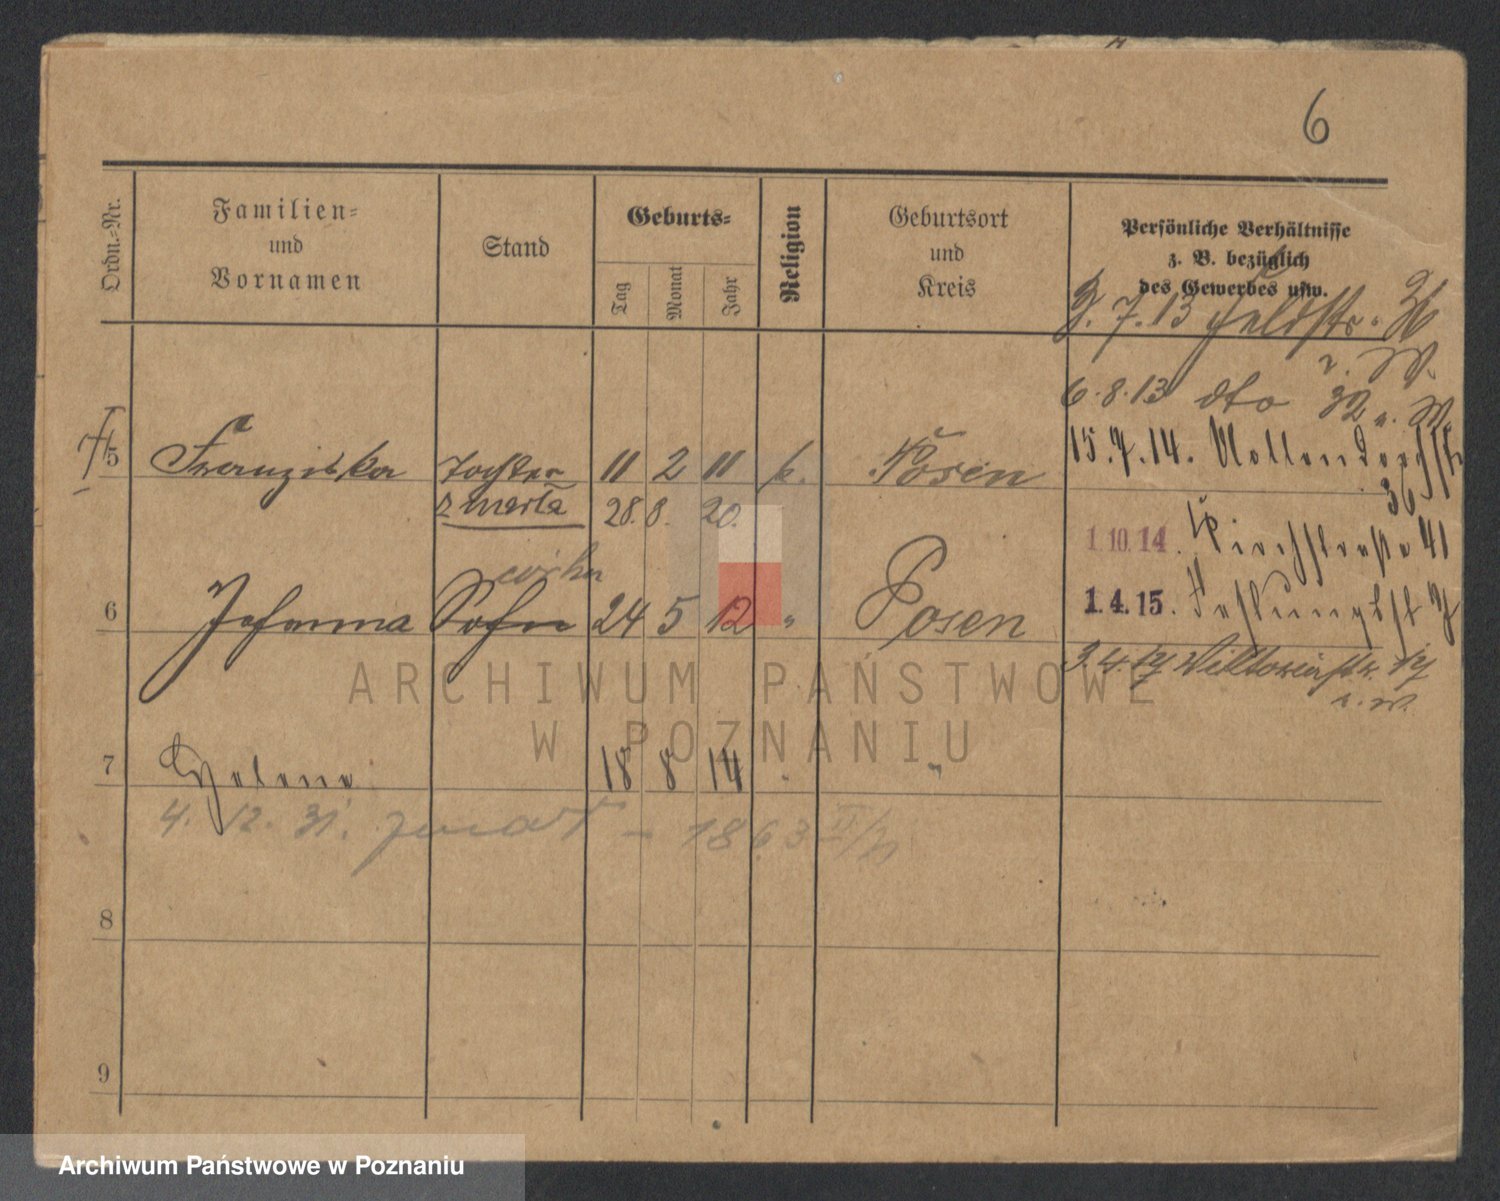 6
Ordn.-Nr.
Familien-
und
Vornamen
Stand
Geburts-
Tag
Monat
Jahr
Religion
Geburtsort
und
Kreis
Persönliche Verhältnisse
z. B. bezüglich
des Gewerbes usw.
7.13 Feldstr.
6.8.13 dto 32 v. W.
5 Franziska Tochter 11 2 11 k. Posen
15.7.14. Nollendorfstr
36
zmarła 28. 8. 20.
1.10.14. Kirchstraße 41
córka
6 Johanna Sohn 24 5 12 " Posen
1.4.15. Festungsst
Viktoriastr. 17
v. W.
7 Helene 18 8 14 " "
4. 12. 31. 1863
8
9
ARCHIWUM PAŃSTWOWE
W POZNANIU
Archiwum Państwowe w Poznaniu